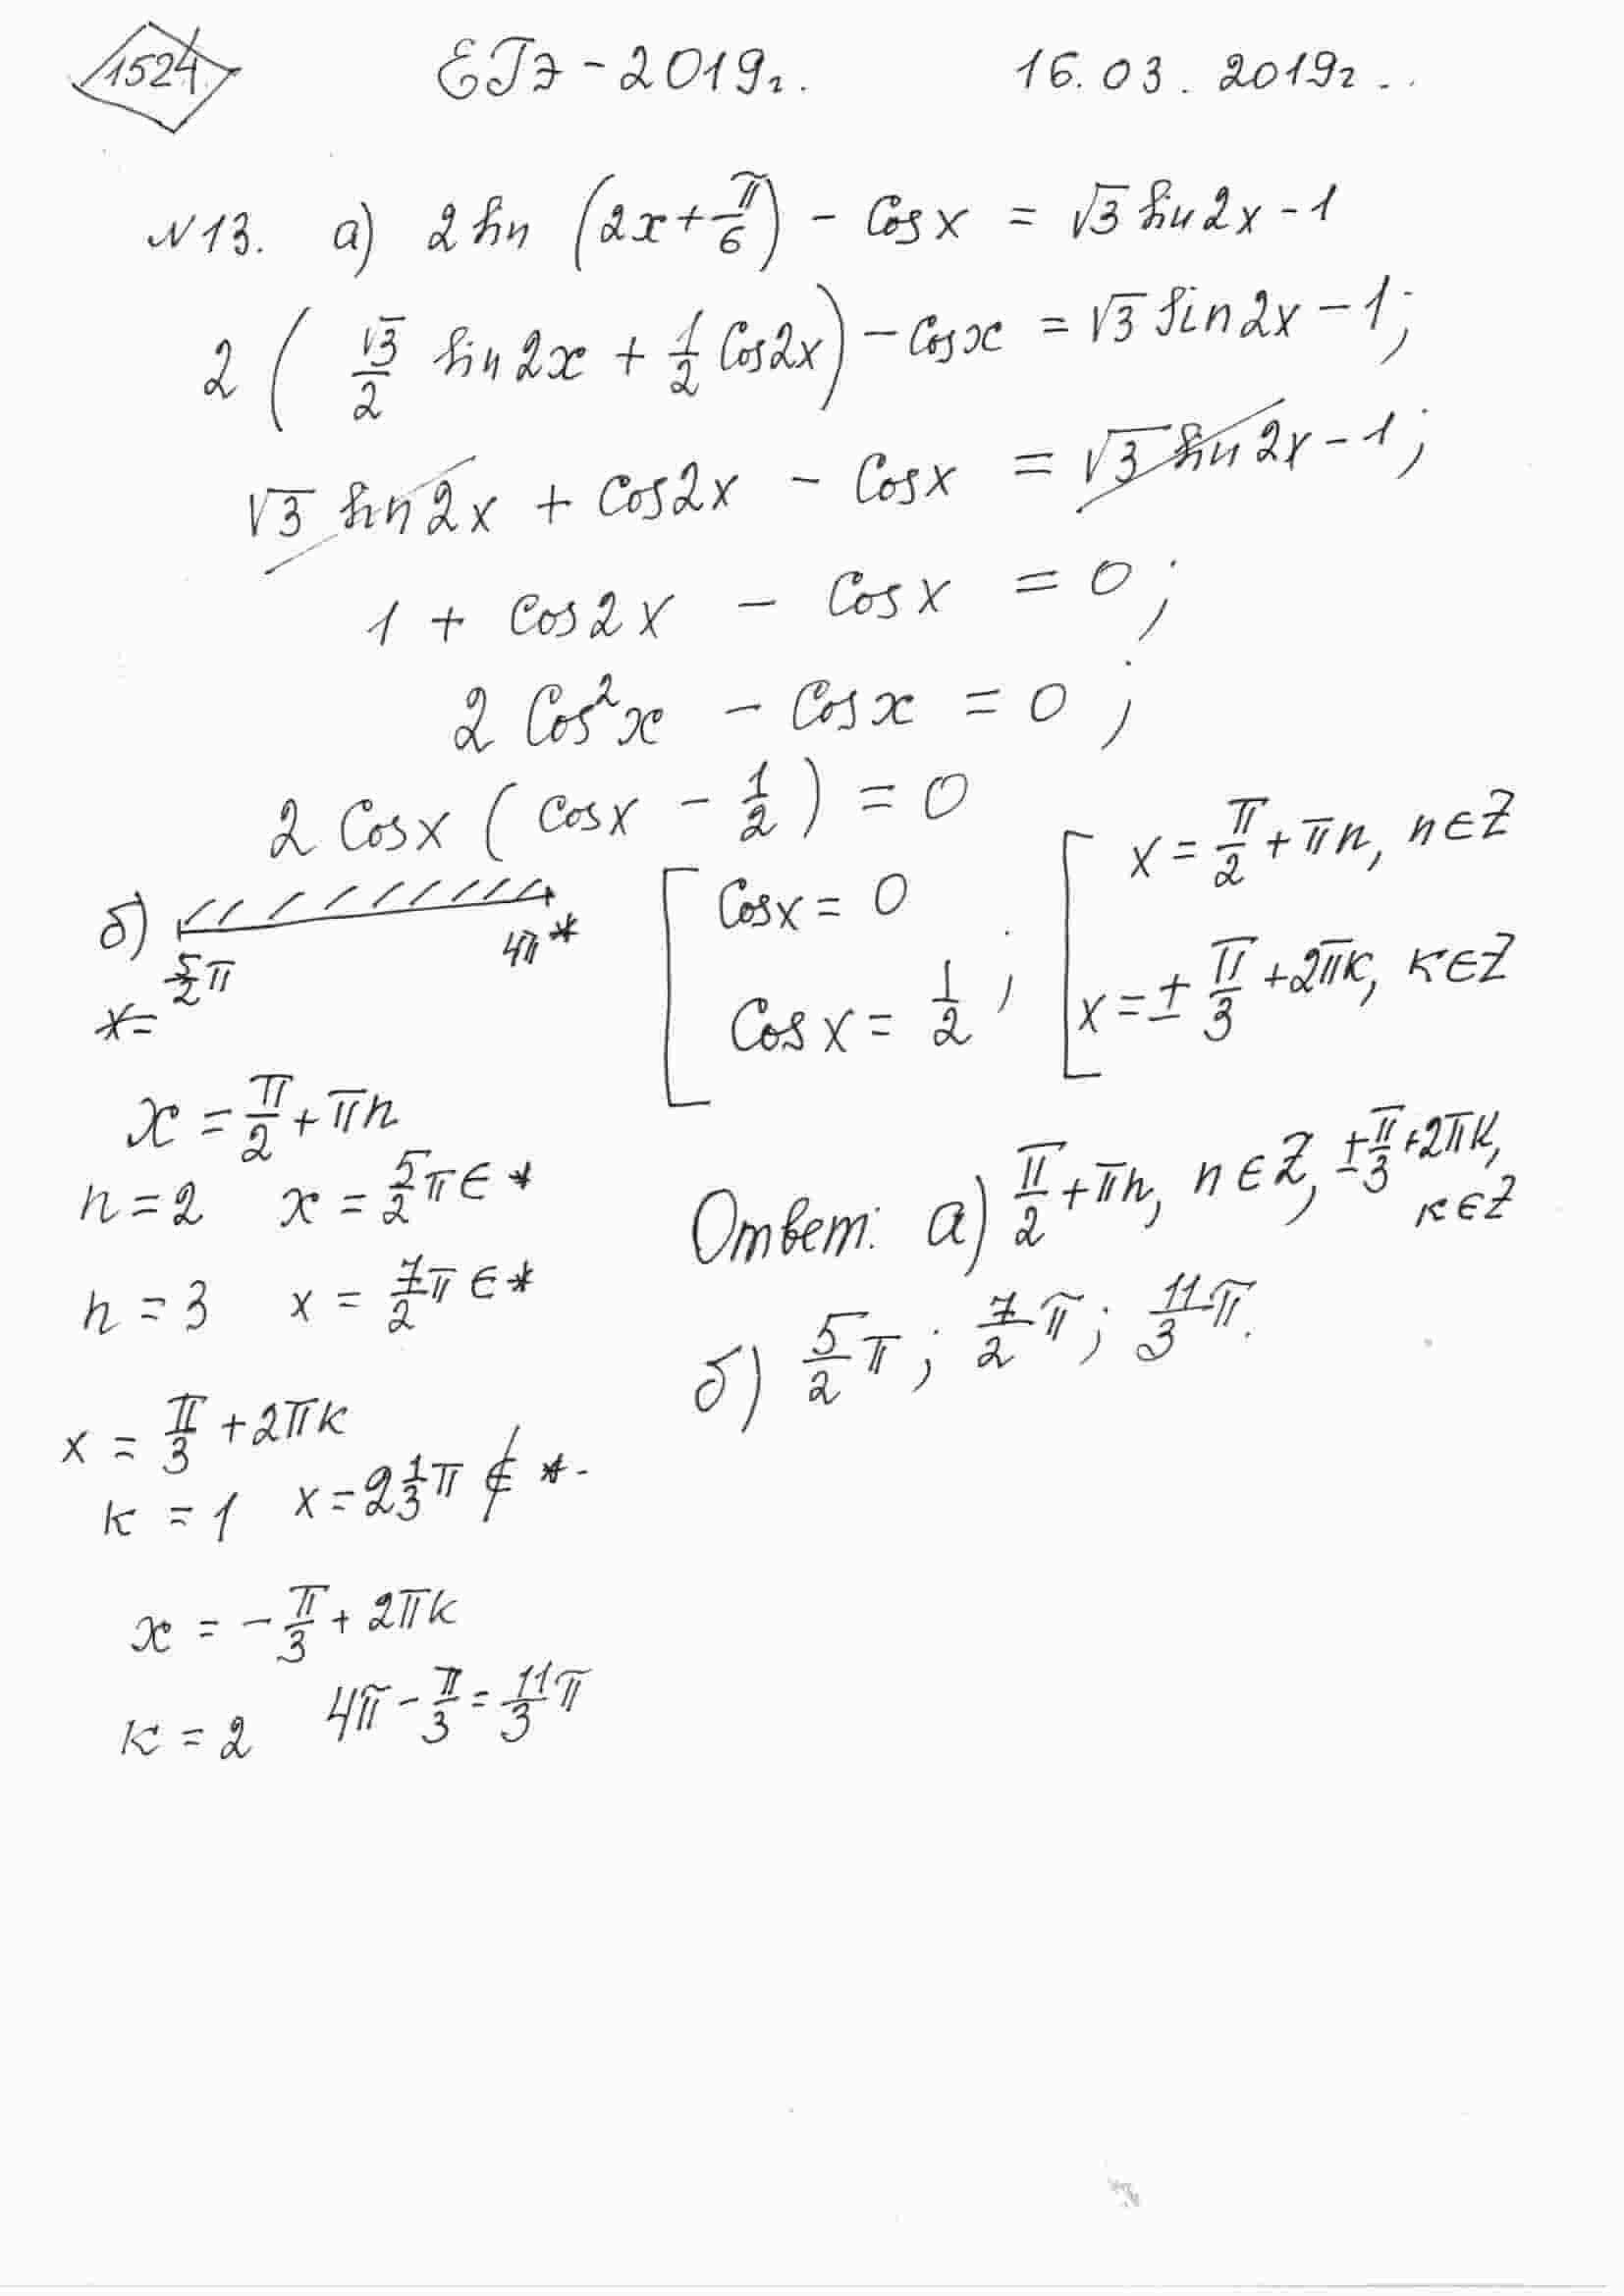 1524 ЕГЭ - 2019г. 16.03.2019г.
№13. а) 2 sin (2x + π/6) - Cos x = √3 sin 2x - 1
2 ( √3/2 sin 2x + 1/2 Cos 2x ) - Cos x = √3 sin 2x - 1;
√3 sin 2x + Cos 2x - Cos x = √3 sin 2x - 1;
1 + Cos 2x - Cos x = 0;
2 Cos² x - Cos x = 0;
2 Cos x ( Cos x - 1/2 ) = 0
[ Cos x = 0
Cos x = 1/2 ;
[ x = π/2 + πn, n ∈ Z
x = ± π/3 + 2πk, k ∈ Z
б) 5/2 π 4π *
x =
x = π/2 + πn
n = 2 x = 5/2 π ∈ *
n = 3 x = 7/2 π ∈ *
x = π/3 + 2πk
k = 1 x = 2 1/3 π ∉ *
x = - π/3 + 2πk
k = 2 4π - π/3 = 11/3 π
Ответ: а) π/2 + πn, n ∈ Z, ± π/3 + 2πk,
k ∈ Z
б) 5/2 π; 7/2 π; 11/3 π.